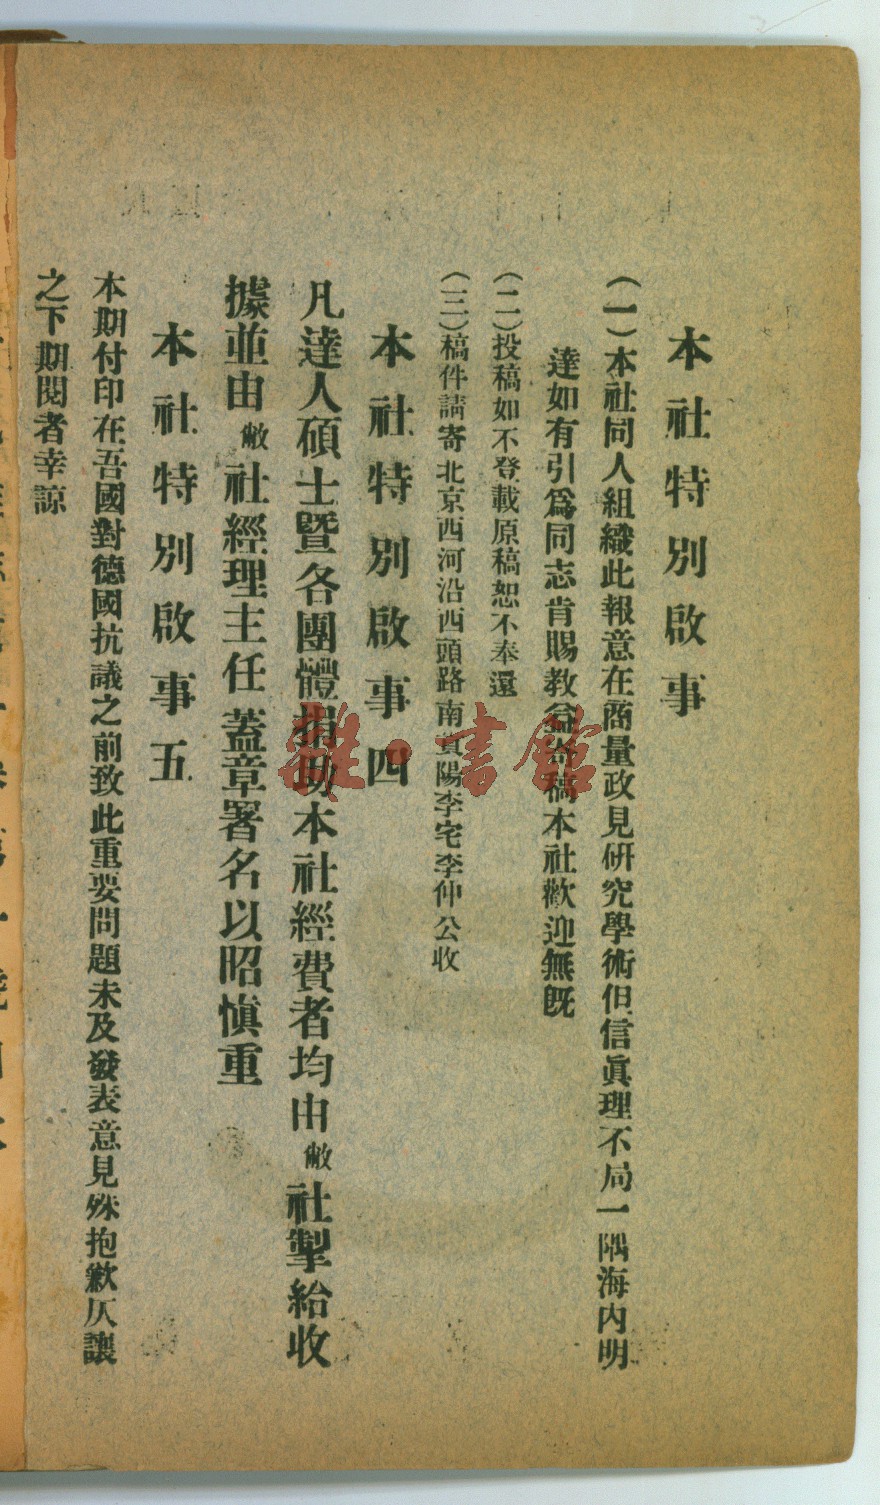 本社特別啟事
（一）本社同人組織此報意在商量政見研究學術但信眞理不局一隅海內明
達如有引爲同志肯賜教益寄稿本社歡迎無旣
（二）投稿如不登載原稿恕不奉還
（三）稿件請寄北京西河沿西頭路南賓陽李宅李仲公收
本社特別啟事四
凡達人碩士暨各團體捐助本社經費者均由敝社掣給收
據並由敝社經理主任蓋章署名以昭愼重
本社特別啟事五
本期付印在吾國對德國抗議之前致此重要問題未及發表意見殊抱歉仄讓
之下期閱者幸諒
雜·書館